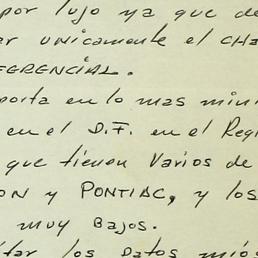 por lujo ya que de
ar unicamente el cha
ferencial.
porta en lo mas mini
en el D.F. en el Reg
que tienen varios de
on y Pontiac, y los
muy bajos.
tar los datos mió